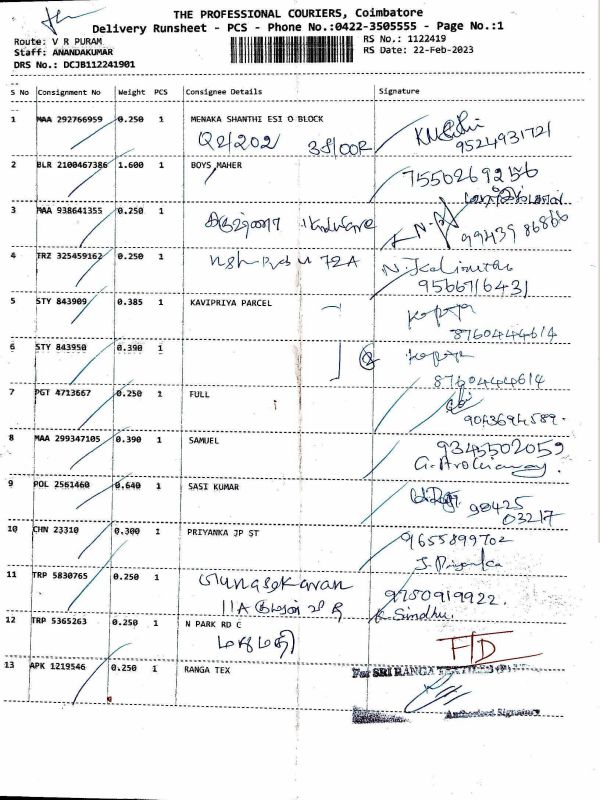 THE PROFESSIONAL COURIERS, Coimbatore
Delivery Runsheet - PCS - Phone No.:0422-3505555 - Page No.:1
Route: V R PURAM
RS No.: 1122419
Staff: ANANDAKUMAR
RS Date: 22-Feb-2023
DRS No.: DCJB112241901
S No Consignment No Weight PCS Consignee Details Signature
1 MAA 292766959 0.250 1 MENAKA SHANTHI ESI O BLOCK
Q2/202
9524931721
2 BLR 2100467386 1.600 1 BOYS MAHER
7550269256
3 MAA 938641355 0.250 1
99439 86866
4 TRZ 325459162 0.250 1 72A
9566716431
5 STY 843909 0.385 1 KAVIPRIYA PARCEL
8760444614
6 STY 843950 0.390 1
8760444614
7 PGT 4713667 0.250 1 FULL
9043694589.
8 MAA 299347105 0.390 1 SAMUEL
9345502059
9 POL 2561460 0.640 1 SASI KUMAR
98425
03217
10 CHN 23310 0.300 1 PRIYANKA JP ST
9655899702
J. Priyanka
11 TRP 5830765 0.250 1
9750919922.
11A
K. Sindhu.
12 TRP 5365263 0.250 1 N PARK RD C
F/D
13 APK 1219546 0.250 1 RANGA TEX
For SRI RANGA
Authorised Signatory